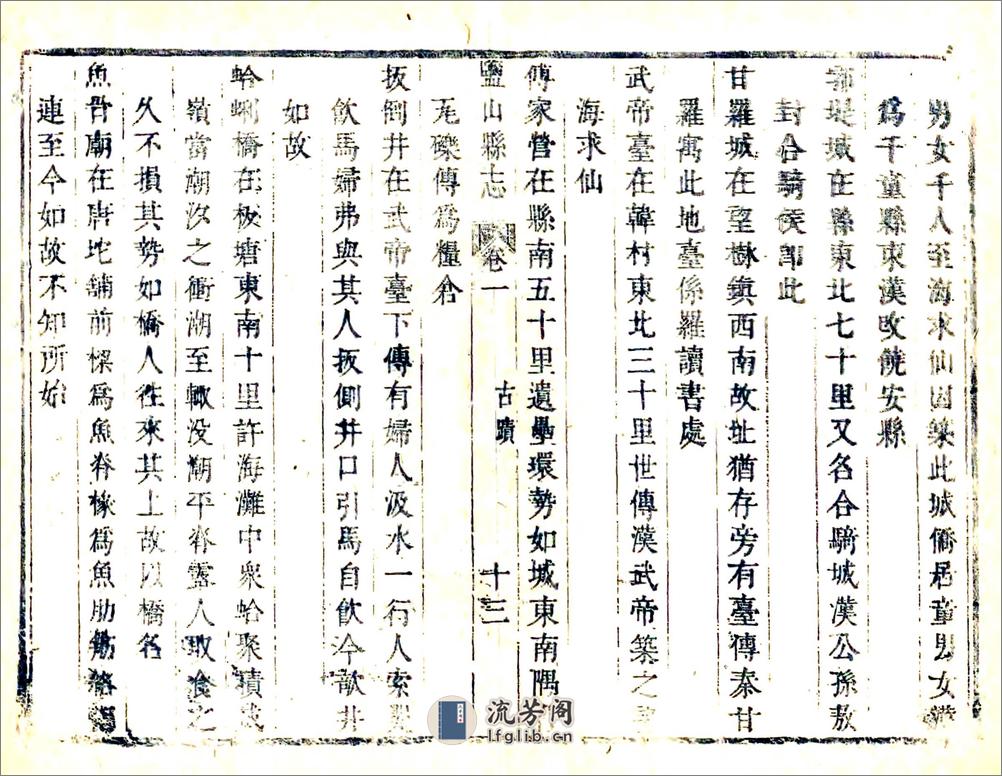 男女千人至海求仙因築此城僑居童男女漢
爲千童縣東漢改饒安縣
堤城在縣東北七十里又名合騎城漢公孫敖
封合騎侯即此
甘羅城在望樹鎮西南故址猶存旁有臺傳秦甘
羅寓此地臺係羅讀書處
武帝臺在韓村東北三十里世傳漢武帝築之
海求仙
傅家營在縣南五十里遺壘環勢如城東南隅
鹽山縣志 卷一 古蹟 十三
瓦礫傳爲糧倉
扳倒井在武帝臺下傳有婦人汲水一行人索
飲馬婦弗與其人扳側井口引馬自飲今欹井
如故
蛤蜊橋在板塘東南十里許海灘中衆蛤聚積成
嶺當潮汐之衝潮至輙没潮平脊露人取食之
久不損其勢如橋人徃來其上故以橋名
魚骨廟在唐坨舖前樑爲魚脊椽爲魚肋
連至今如故不知所始
流芳阁
lfglib.cn